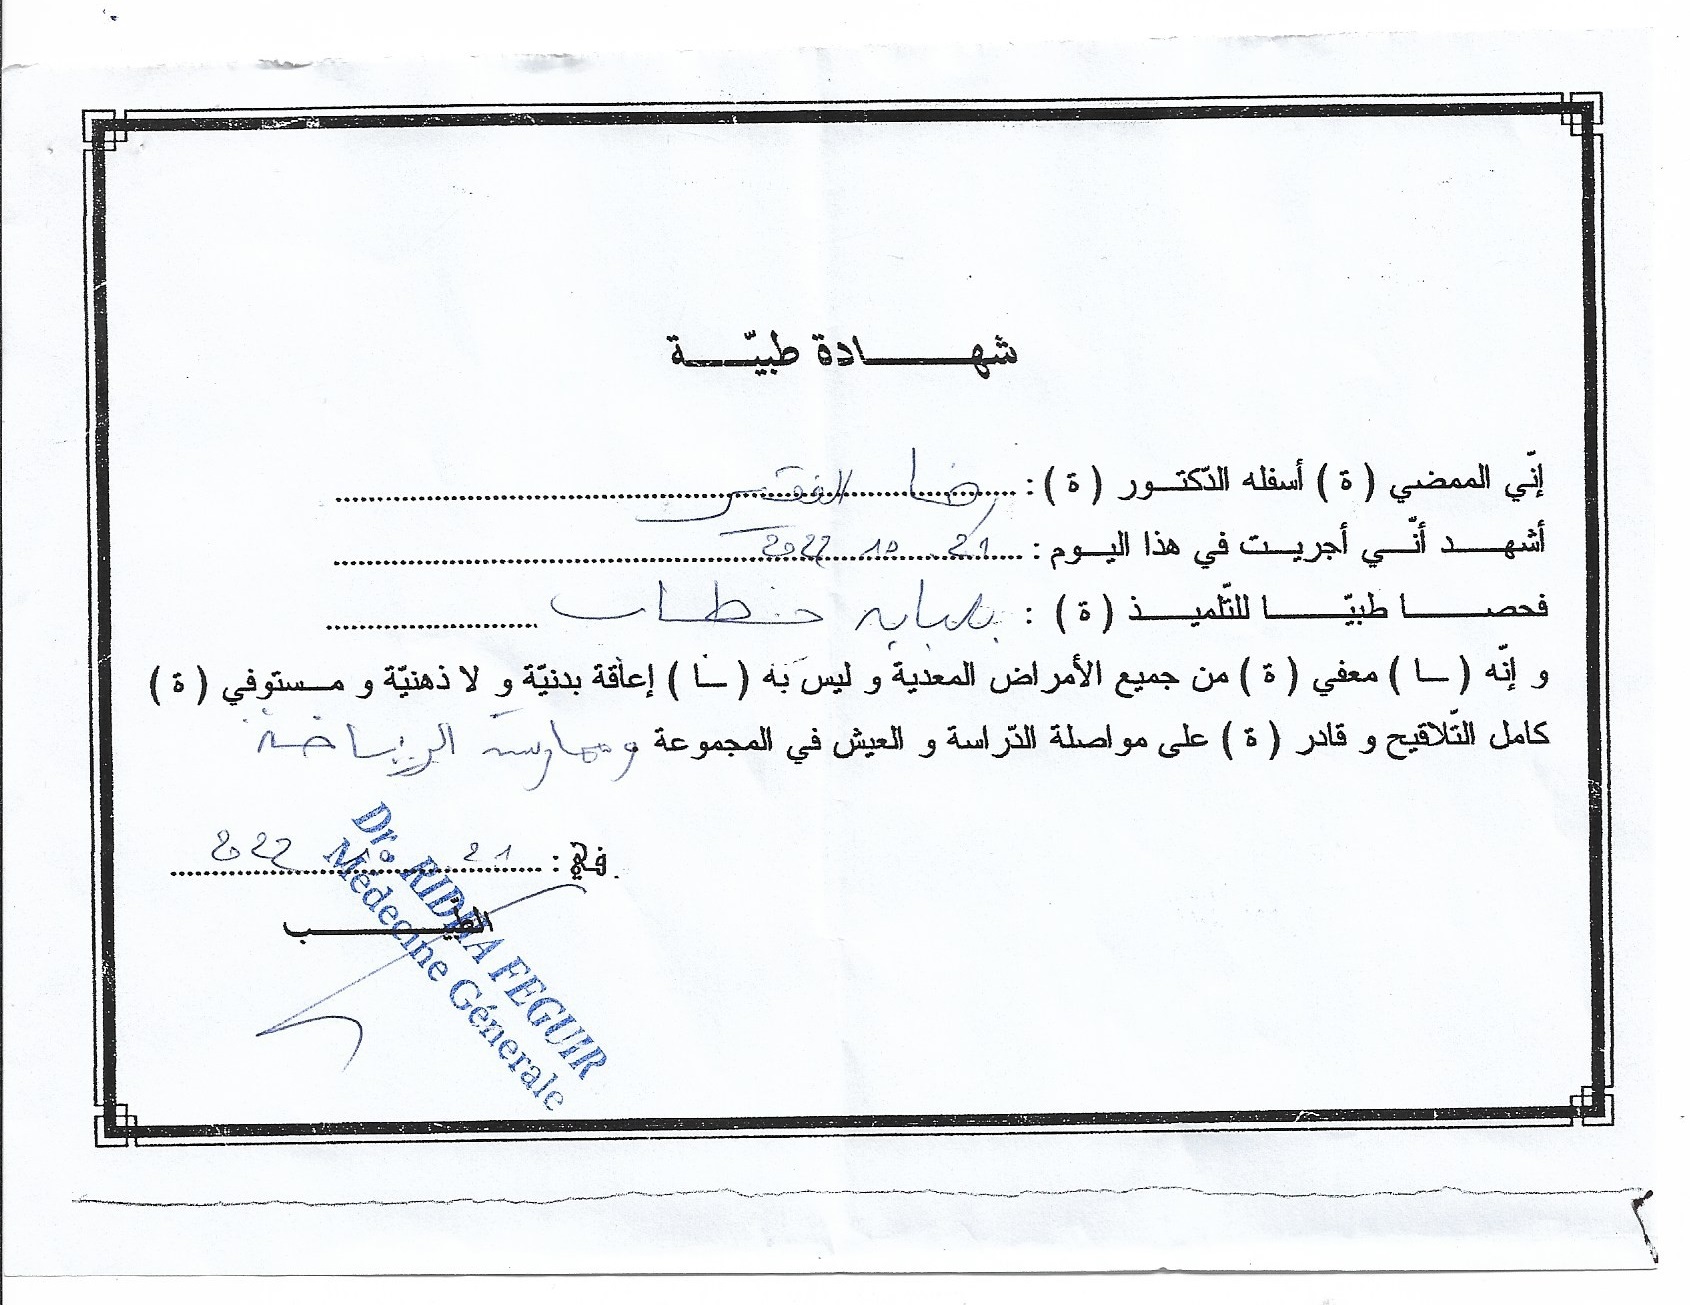 شهادة طبيّة
إنّي الممضي ( ة ) أسفله الدّكتور ( ة ) : رضا الفقير
أشهد أنّي أجريت في هذا اليوم : 21 10 2022
فحصا طبيّا للتّلميذ ( ة ) : خطاب
و إنّه ( ـا ) معفي ( ة ) من جميع الأمراض المعدية و ليس به ( ـا ) إعاقة بدنيّة و لا ذهنيّة و مستوفي ( ة )
كامل التّلاقيح و قادر ( ة ) على مواصلة الدّراسة و العيش في المجموعة وممارسة الرياضة
في : 21 2022
الطبيب
Dr. RIDHA FEGUIR
Médecine Génerale